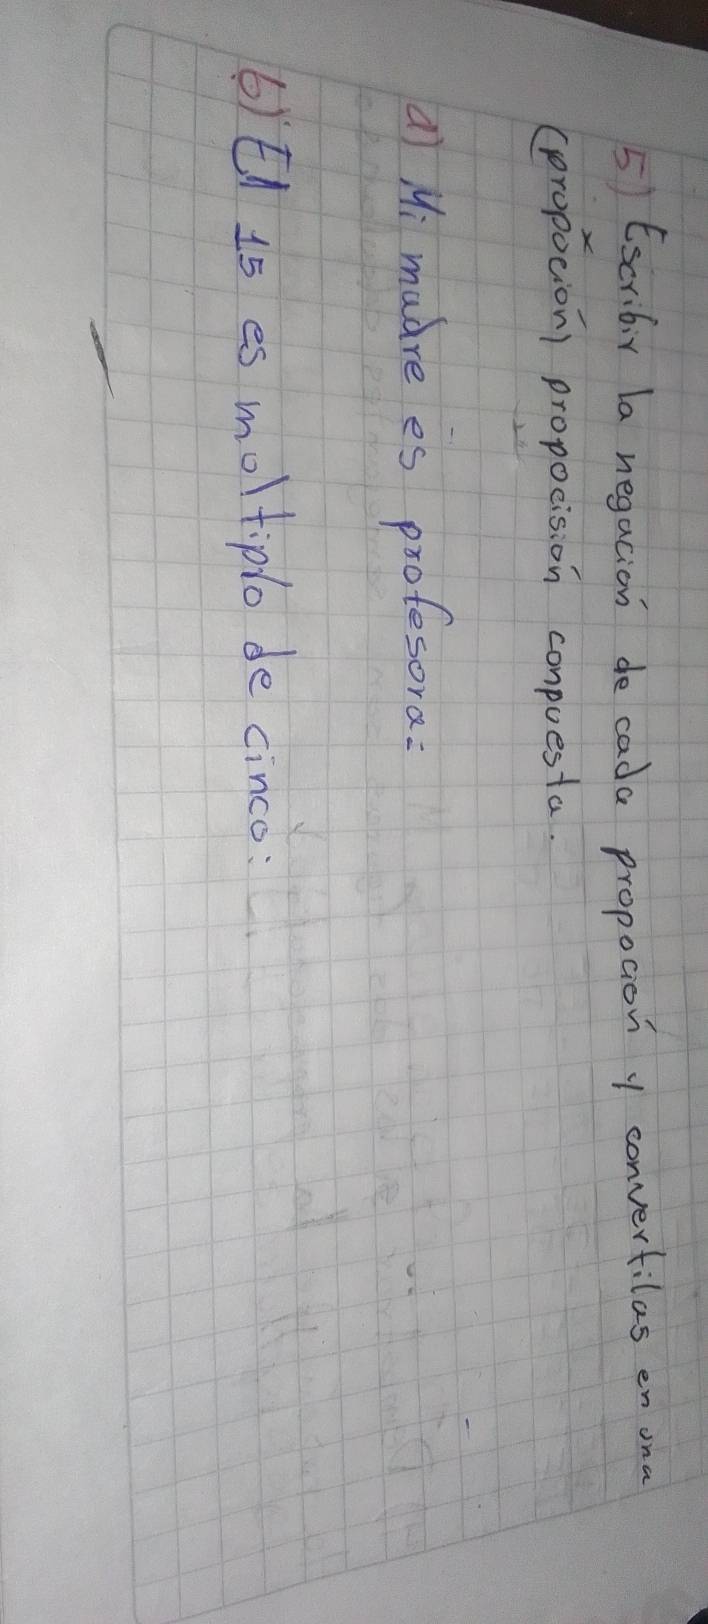 5) Escribir la negación de cada propoción y convertilas en una
(propoción) propocisión conpuesta.
a) Mi madre es profesora:
b) El 15 es moltiplo de cinco: